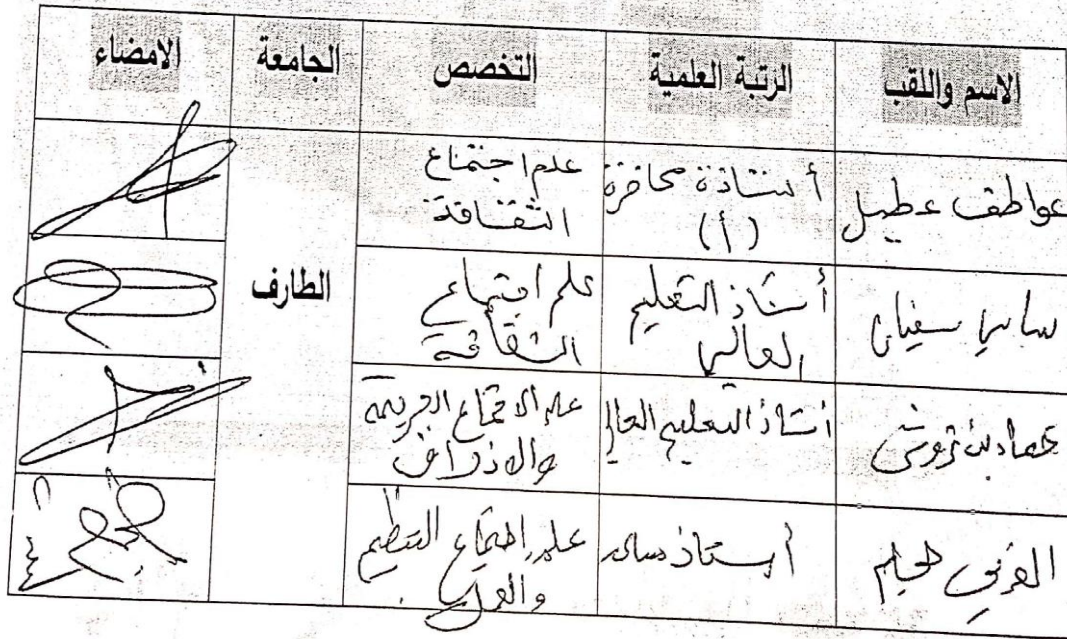 الاسم واللقب الرتبة العلمية التخصص الجامعة الامضاء
عواطف عطيل أستاذة محاضرة علم اجتماع
(أ) الثقافة
ساسي سفيان أستاذ التعليم علم اجتماع الطارف
العالي الثقافة
عماد بن تروش أستاذ التعليم العالي علم الاجتماع الجريمة
والانحراف
القرني حليم أستاذ مساعد علم اجتماع التنظيم
والعمل